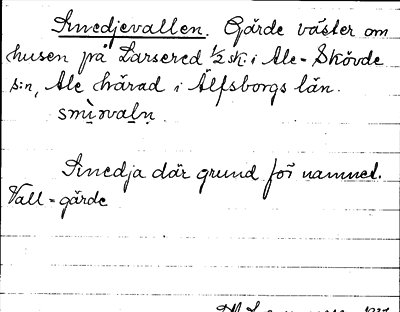 Smedjevallen. Gärde väster om
husen på Larsered ½ sk. i Ale-Skövde
s:n, Ale härad i Älfsborgs län.
smìrvaḷṇ.
Smedja där grund för namnet.
Vall = gärde